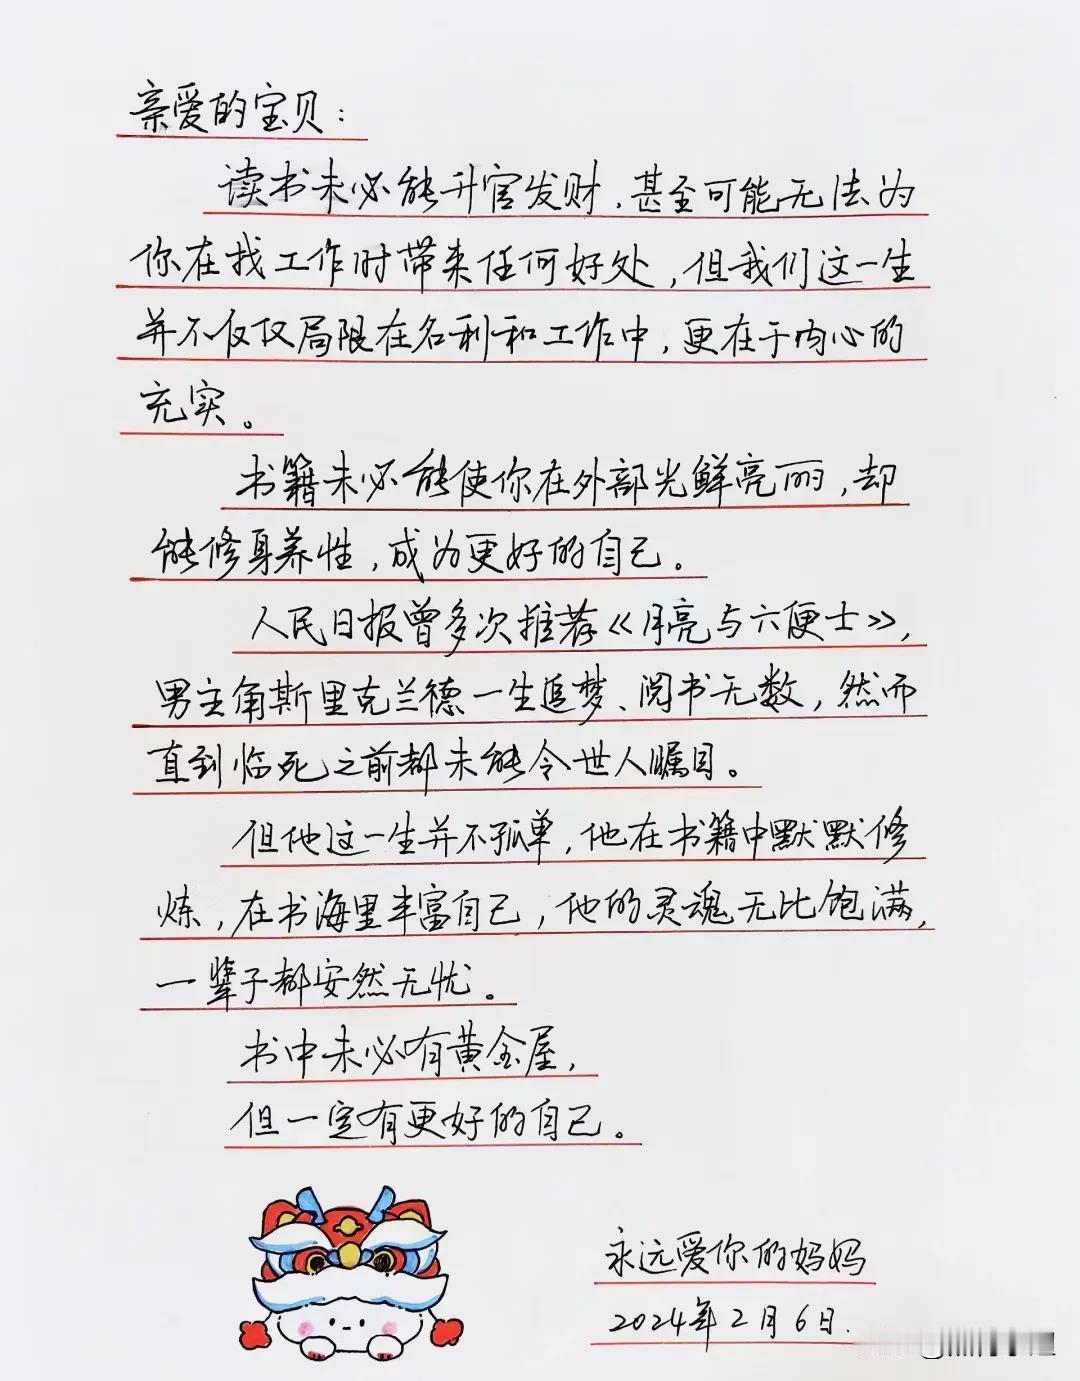 亲爱的宝贝：
读书未必能升官发财，甚至可能无法为
你在找工作时带来任何好处，但我们这一生
并不仅仅局限在名利和工作中，更在于内心的
充实。
书籍未必能使你在外部光鲜亮丽，却
能修身养性，成为更好的自己。
人民日报曾多次推荐《月亮与六便士》，
男主角斯里克兰德一生追梦、阅书无数，然而
直到临死之前都未能令世人瞩目。
但他这一生并不孤单，他在书籍中默默修
炼，在书海里丰富自己，他的灵魂无比饱满，
一辈子都安然无忧。
书中未必有黄金屋，
但一定有更好的自己。
永远爱你的妈妈
2024年2月6日.